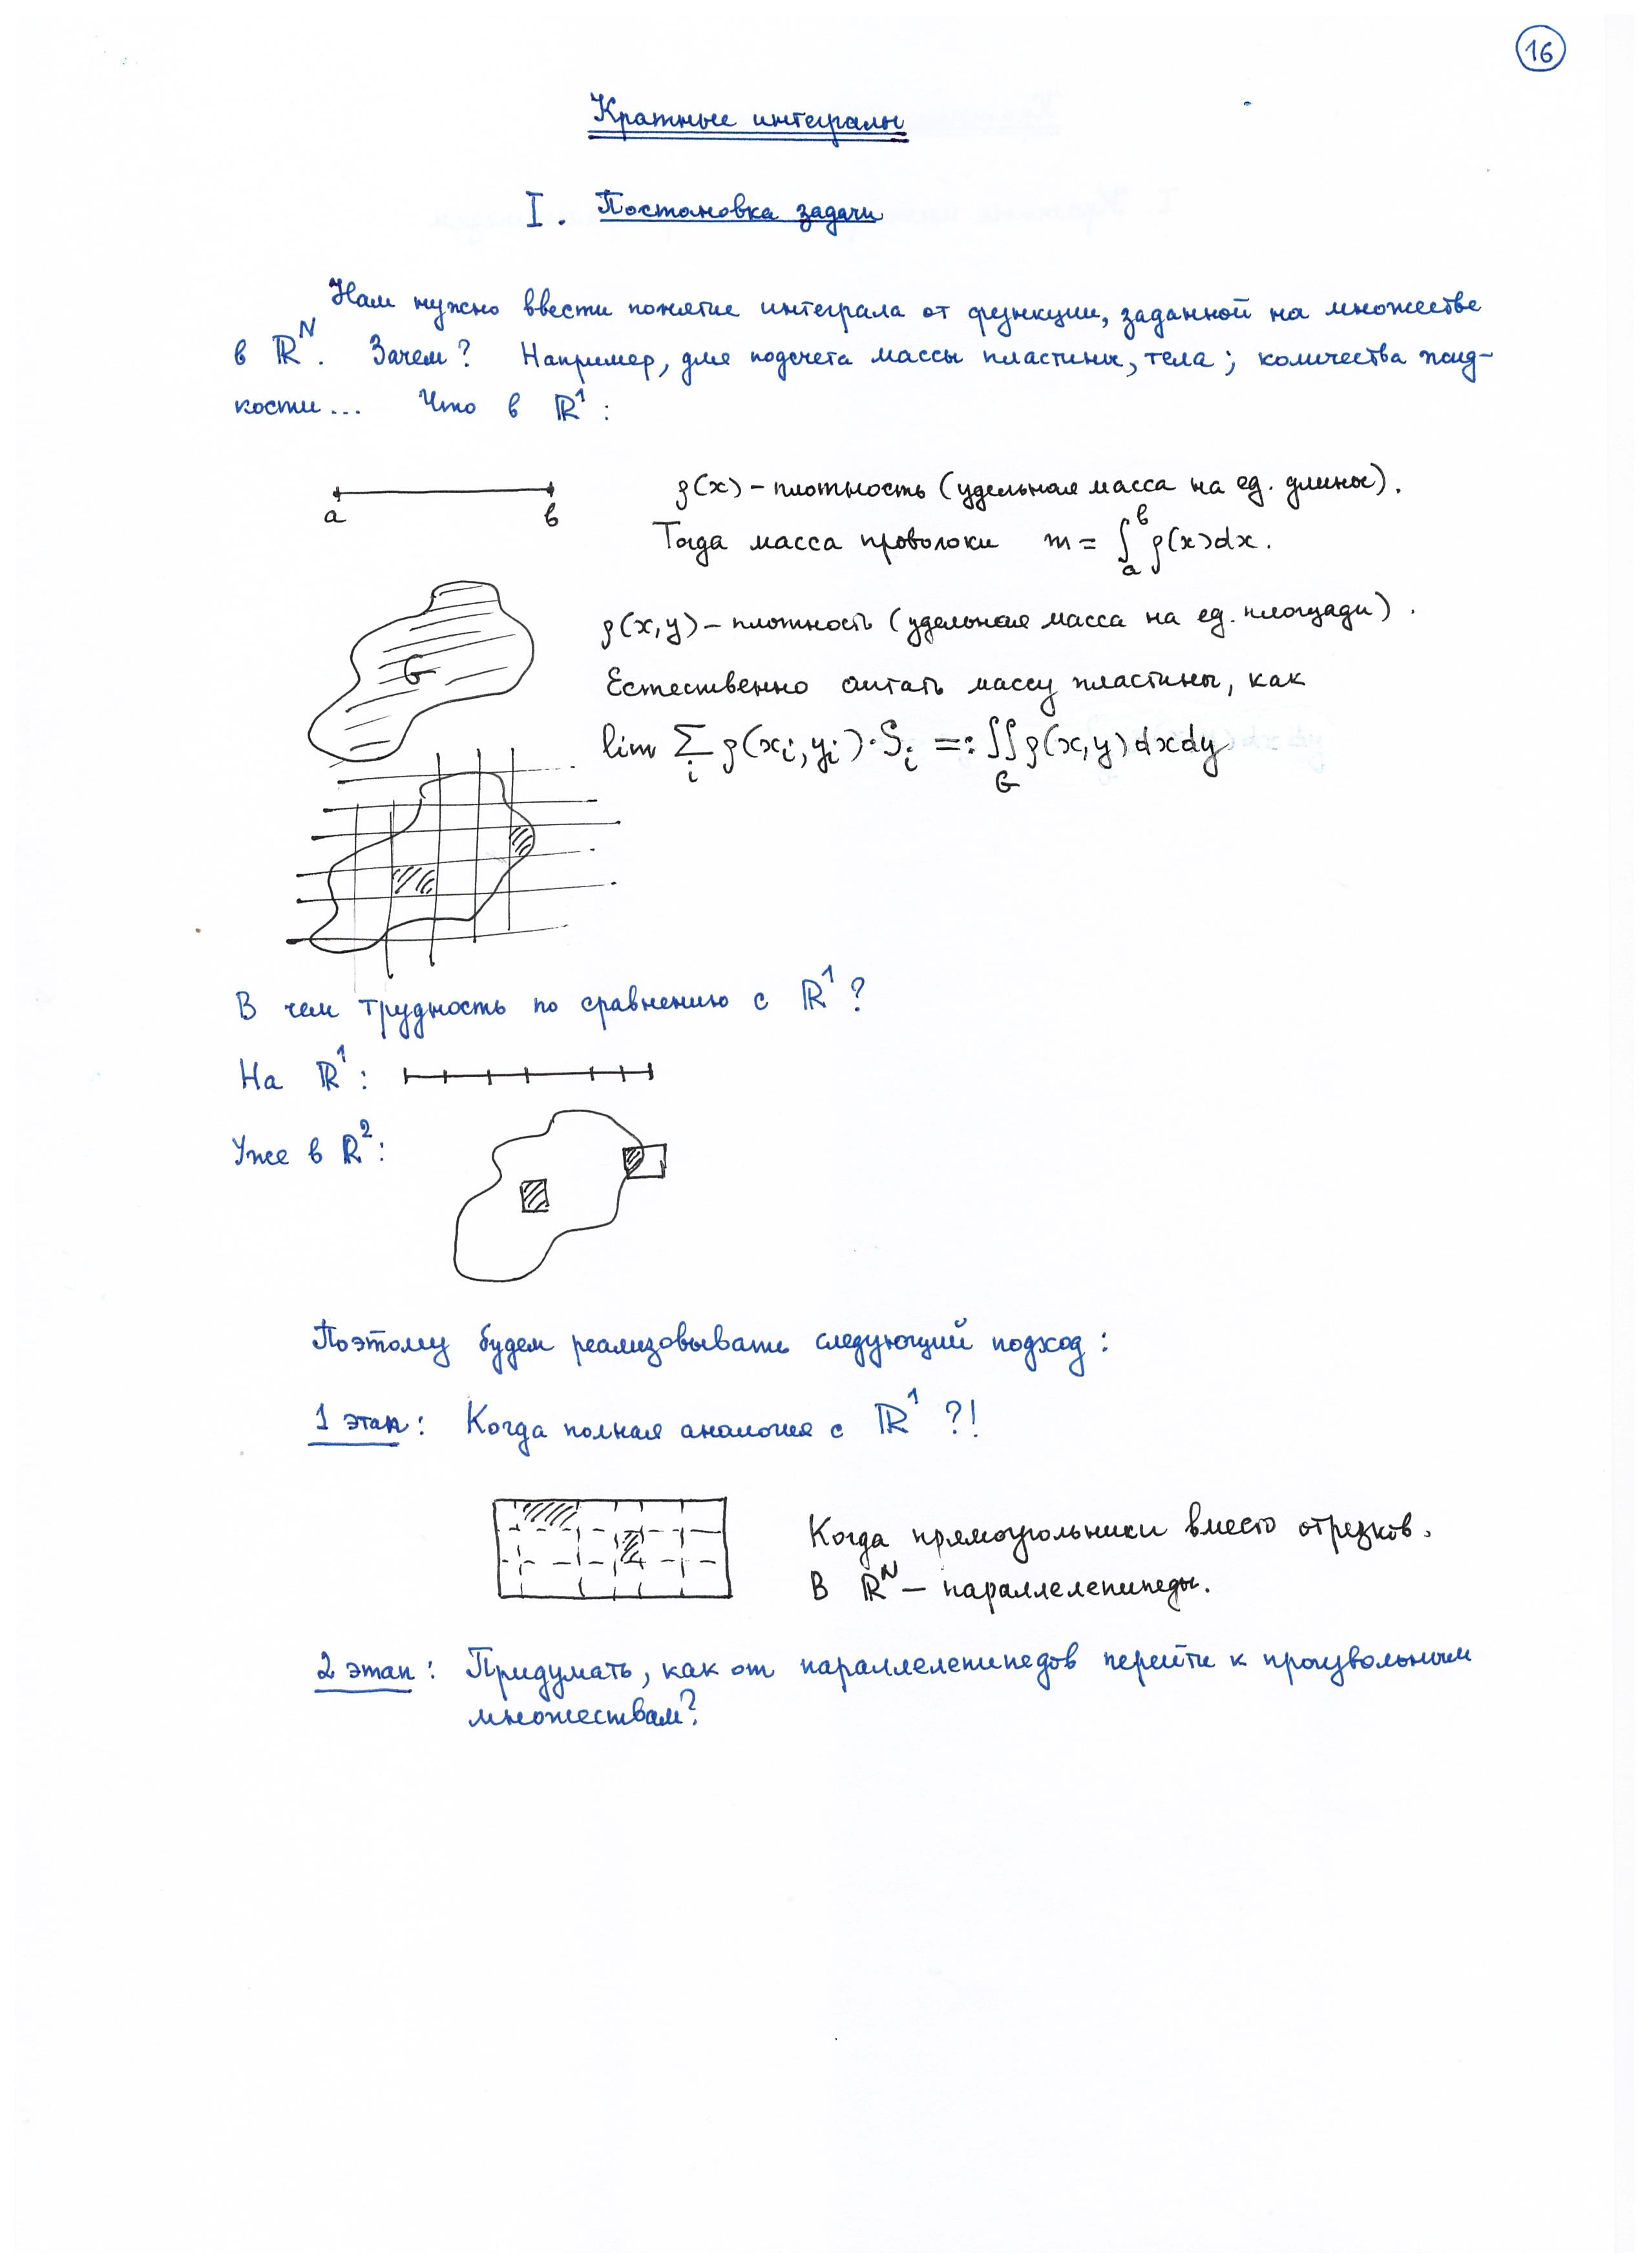 16
Кратные интегралы
I. Постановка задачи
Нам нужно ввести понятие интеграла от функции, заданной на множестве
в ℝᴺ. Зачем? Например, для подсчета массы пластины, тела; количества жид-
кости... Что в ℝ¹:
a b
ρ(x) – плотность (удельная масса на ед. длины).
Тогда масса проволоки m = ∫ₐᵇ ρ(x)dx.
G
ρ(x,y) – плотность (удельная масса на ед. площади).
Естественно считать массу пластины, как
lim Σᵢ ρ(xᵢ,yᵢ)·Sᵢ =: ∬_G ρ(x,y)dxdy
В чем трудность по сравнению с ℝ¹?
На ℝ¹:
Уже в ℝ²:
Поэтому будем реализовывать следующий подход:
1 этап: Когда полная аналогия с ℝ¹ ?!
Когда прямоугольники вместо отрезков.
В ℝᴺ – параллелепипеды.
2 этап: Придумать, как от параллелепипедов перейти к произвольным
множествам?